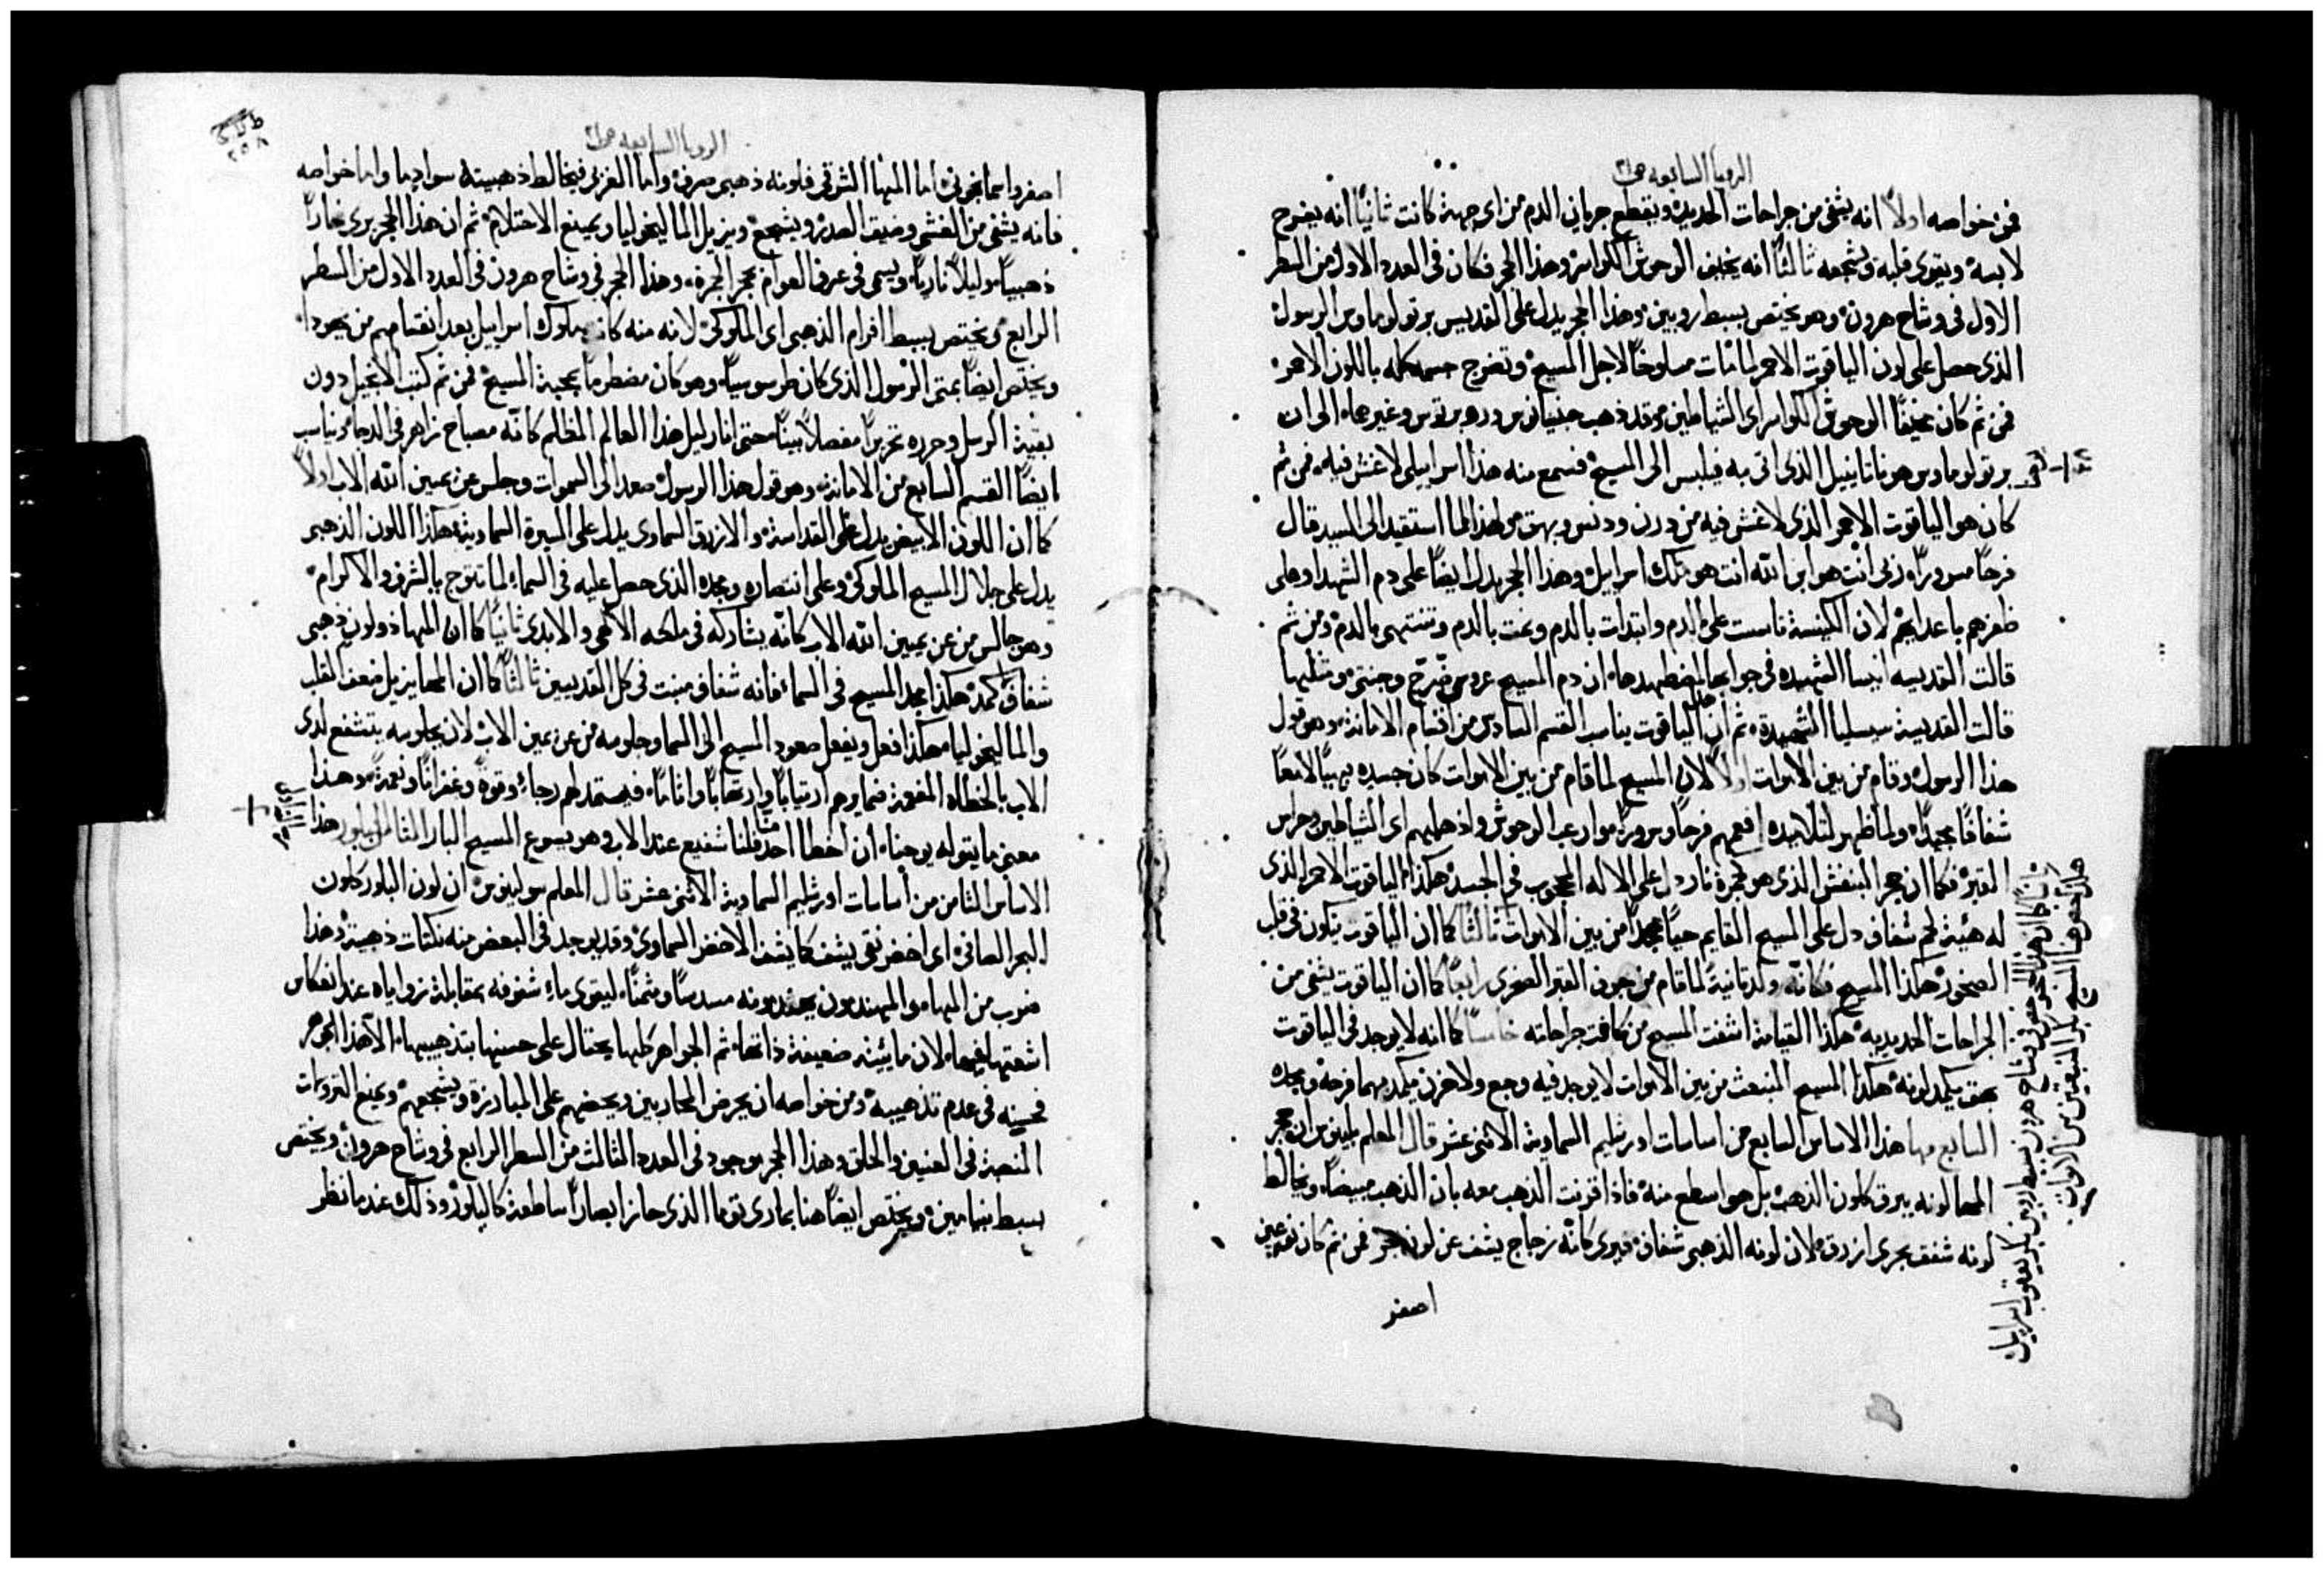 الرويا السابعه
فمن خواصه اولاً انه يشفى من جراحات الحديد ويقطع جريان الدم من اى جهة كانت ثانياً انه يفرح
لابسه ويقوى قلبه ويشجعه ثالثاً انه يخيف الوحوش الكواسر وهذا الحجر فكان فى العدد الاول من السطر
الاول فى وشاح هرون وهو يختص بسبط روبين وهذا الحجر يدل على القديس برتولوماوس الرسول
الذى حصل على لون الياقوت الاحمر لما مات مسلوخاً لاجل المسيح وتضرج جسمه كله باللون الاحمر
فمن ثم كان مخيفاً الوحوش الكواسر اى الشياطين وغيرهما الى ان
برتولوماوس هو ناتانييل الذى اتى به فيلبس الى المسيح فسمع منه هذا اسراييلى لا غش فيه فمن ثم
كان هو الياقوت الاحمر الذى لا غش فيه من درن ودنس وبهق ولهذا لما استقيد الى السيد قال
فرحاً مسروراً ربى انت هو ابن الله انت هو ملك اسراييل وهذا الحجر يدل ايضاً على دم الشهدا وعلى
ظفرهم باعدايهم لان الكنيسة تاسست على الدم وابتدات بالدم ونمت بالدم وتنتهى بالدم ومن ثم
قالت القديسه انيسا الشهيده فى جوابها لمضطهدها ان دم المسيح عروسى ضرّج وجنتى ومثلها
قالت القديسة سيسليا الشهيدة ثم ان الياقوت يناسب القسم السادس من اقسام الامانة وهو قول
هذا الرسول وقام من بين الاموات اولاً لان المسيح لما قام من بين الاموات كان جسده بهياً لامعاً
شفافاً مجيداً ولما ظهر لتلاميده افعمهم فرحاً وسروراً وارعب الوحوش واذهلهم اى الشياطين وحراس
القبر فكما ان حجر البنفش الذى هو كجمرة نار دل على الاله المحجوب فى الجسد هكذا الياقوت الاحمر الذى
له هئية لحم شفاف دل على المسيح القايم حياً مجيداً من بين الاموات ثالثاً كما ان الياقوت يتكون فى قلب
الصخور هكذا المسيح فكانه ولد ثانية لما قام من جوف القبر الصخرى رابعاً كما ان الياقوت يشفى من
الجراحات الحديديه هكذا القيامة اشفت المسيح من كافت جراحاته خامساً كما انه لا يوجد فى الياقوت
بهق يكمد لونه هكذا المسيح المنبعث من بين الاموات لا يوجد فيه وجع ولا حزن يكمد مهما فرحه ومجده
السابع مها هذا الاساس السابع من اساسات اورشليم السماوية الاثنى عشر قال المعلم بلينوس ان حجر
المها لونه يبرق كلون الذهب بل هو اسطع منه فاذا اقرنت الذهب معه بان الذهب مبيضاً ويخالط
لونه شفق بحرى ازرق لان لونه الذهبى شفاف فيرى كانه زجاج يشف عن لون فمن ثم كان نوعين
اصفر
ثانياً كما ان هذا الحجر فى وشاح هرون بسبط روبين بكر يعقوب اسراييل
هكذا يختص هنا المسيح بكر المنبعثين من الاموات
الرويا السابعه
اصفر واسمانجونى اما المها الشرقى فلونه ذهبى صرف واما الغربى فيخالط ذهبيته سواد ما واما خواصه
فانه يشفى من الغشى وضيق الصدر ويشجع ويزيل الماليخوليا ويمنع الاحتلام ثم ان هذا الحجر يرى نهاراً
ذهبياً وليلاً نارياً ويسمى فى عرف العوام بحجر الجمرة وهذا الحجر فى وشاح هرون فى العدد الاول من السطر
الرابع ويختص بسبط افرام الذهبى اى الملوكى لانه منه كانت ملوك اسراييل بعد انقسامهم من يهودا
ويختص ايضاً بمتى الرسول الذى كان طرسوسياً وهو كان مضطرماً بمحبة المسيح فمن ثم كتب الانجيل دون
بقية الرسل وحرره تحريراً مفصلاً بيناً حتى انار ليل هذا العالم المظلم كانه مصباح زاهر فى الدجا ويناسب
ايضاً القسم السابع من الامانة وهو قول هذا الرسول صعد الى السموات وجلس عن يمين الله الاب اولاً
كما ان اللون الابيض يدل على القداسة والازرق السماوى يدل على السيرة السماوية هكذا اللون الذهبى
يدل على جلال المسيح الملوكى وعلى انتصاره ومجده الذى حصل عليه فى السماء لما تتوج بالشرف والاكرام
وهو جالس من عن يمين الله الاب كانه يشاركه فى ملكه الالهى والابدى ثانياً كما ان المها ذو لون ذهبى
شفاف كمد هكذا مجد المسيح فى السماء فانه شفاف مبنت فى كل القديسين ثالثاً كما ان المها يزيل ضعف القلب
والماليخوليا هكذا فعل ويفعل صعود المسيح الى السما وجلوسه من عن يمين الاب لان بجلوسه يتشفع لدى
الاب بالخطاه المفعمة ضمايرهم ارتياباً وارتهاباً واثاماً فيستمد لهم رجاءً وقوةً وغفراناً ونعمةً وهذا
معنى ما يقوله يوحنا ان اخطا احد منا فلنا شفيع عند الاب وهو يسوع المسيح البار الثامن البلور هذا
الاساس الثامن من أساسات اورشليم السماوية الاثنى عشر قال المعلم سولينوس ان لون البلور كلون
البحر الصافى اى اخضر نقى يشف كما يشف الاخضر السماوى وقد يوجد فى البعض منه نكتات ذهبية وهذا
ضرب من المها والمهندمون يهندمونه مسدساً ومثمناً ليقوى ماء شفوفه بمقابلة زواياه عند انعكاس
اشعتها فيها لان مائيته ضعيفة ذاتها ثم الجواهر كلها يحتال على حسنها بتذهيبها الا هذا الجوهر
فحسنه فى عدم تذهيبه ومن خواصه ان يحرض المحاربين ويحضهم على المبارزة ويشجعهم ويمنع التروحات
المنصبة فى العنين والحلق وهذا الحجر موجود فى العدد الثالث من السطر الرابع فى وشاح هرون ويختص
بسبط بنيامين ويختص ايضاً هنا بمارى توما الذى حاز ابصاراً ساطعة كالبلور وذلك عند ما نظر